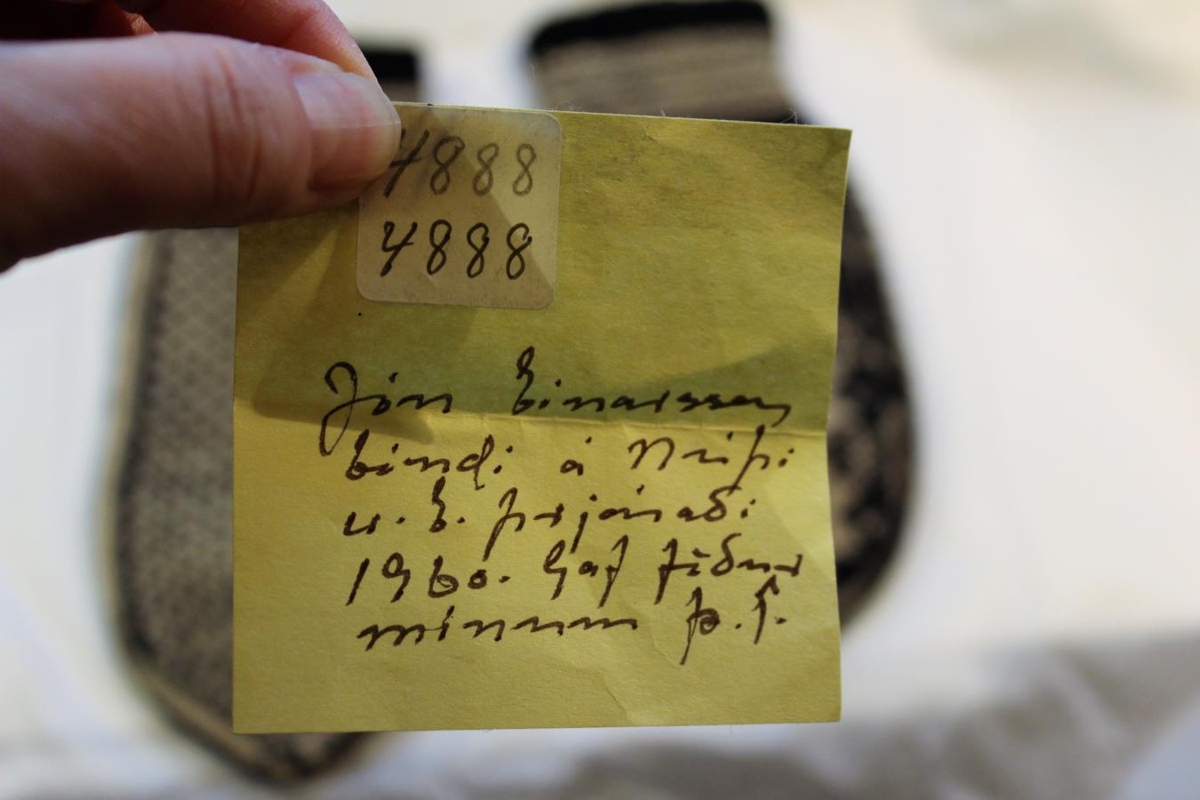 4888
4888
Jón Einarsson
bóndi á Neðri
prjónaði
1960. Gaf föður
mínum Þ.